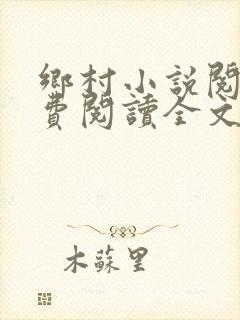 鄉村小說閱
費閱讀全文
木蘇里